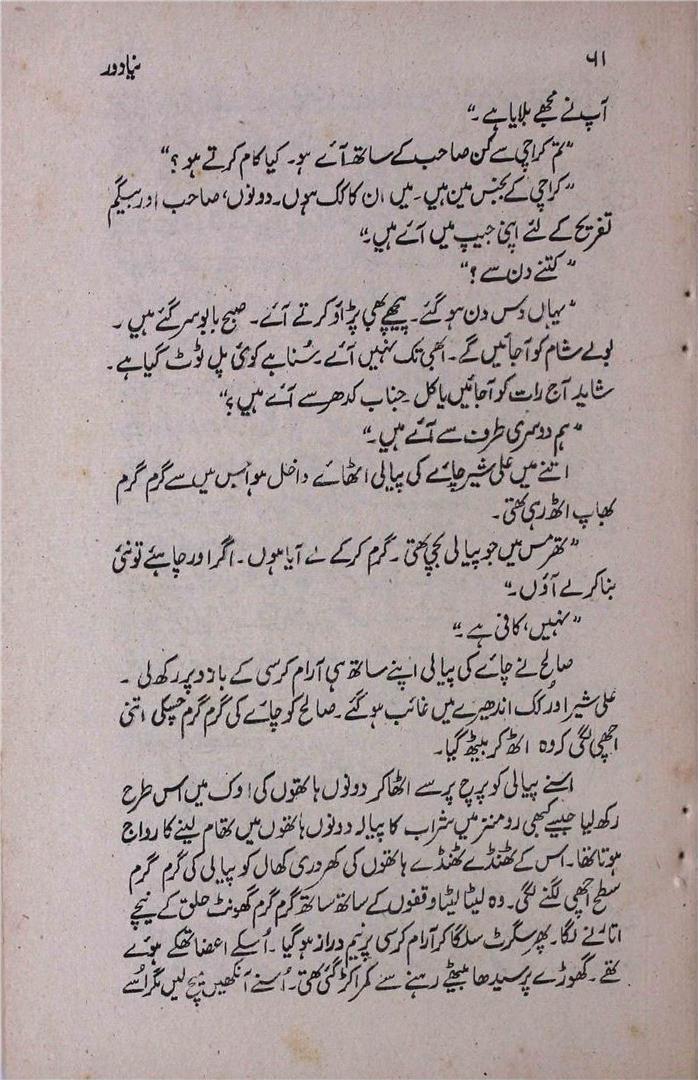 ۶۱ نیا دور
آپ نے مجھے بلایا ہے۔"
"تم کراچی سے کن صاحب کے ساتھ آئے ہو۔ کیا کام کرتے ہو؟"
"کراچی کے بجنس مین ہیں۔ میں ان کا کک ہوں۔ دونوں، صاحب اور بیگم
تفریح کے لئے اپنی جیپ میں آئے ہیں۔"
"کتنے دن سے؟"
"یہاں دس دن ہو گئے۔ پیچھے بھی پڑاؤ کرتے آئے۔ صبح بابو سر گئے ہیں۔
بولے شام کو آجائیں گے۔ ابھی تک نہیں آئے۔ سُنا ہے کوئی پل ٹوٹ گیا ہے۔
شاید آج رات کو آجائیں یا کل۔ جناب کدھر سے آئے ہیں؟"
"ہم دوسری طرف سے آئے ہیں۔"
اتنے میں علی شیر چائے کی پیالی اٹھائے داخل ہوا جس میں سے گرم گرم
بھاپ اٹھ رہی تھی۔
"تھرمس میں جو پیالی بچی تھی۔ گرم کر کے لے آیا ہوں۔ اگر اور چاہئے تو نئی
بنا کر لے آؤں۔"
"نہیں، کافی ہے۔"
صالح نے چائے کی پیالی اپنے ساتھ ہی آرام کرسی کے بازو پر رکھ لی۔
علی شیر اور کک اندھیرے میں غائب ہو گئے۔ صالح کو چائے کی گرم گرم چسکی اتنی
اچھی لگی کہ وہ اٹھ کر بیٹھ گیا۔
اسنے پیالی کو پرچ پر سے اٹھا کر دونوں ہاتھوں کی اوک میں اس طرح
رکھ لیا جیسے کبھی رومنز میں شراب کا پیالہ دونوں ہاتھوں میں تھام لینے کا رواج
ہوتا تھا۔ اس کے ٹھنڈے ٹھنڈے ہاتھوں کی کھردری کھال کو پیالی کی گرم گرم
سطح اچھی لگنے لگی۔ وہ لیٹا لیٹا وقفوں کے ساتھ ساتھ گرم گرم گھونٹ حلق کے نیچے
اتارنے لگا۔ پھر سگرٹ سلگا کر آرام کرسی پر نیم دراز ہو گیا۔ اُسکے اعضا تھکے ہوئے
تھے۔ گھوڑے پر سیدھا بیٹھے رہنے سے کمر اکڑ گئی تھی۔ اُسنے آنکھیں میچ لیں مگر اُسے